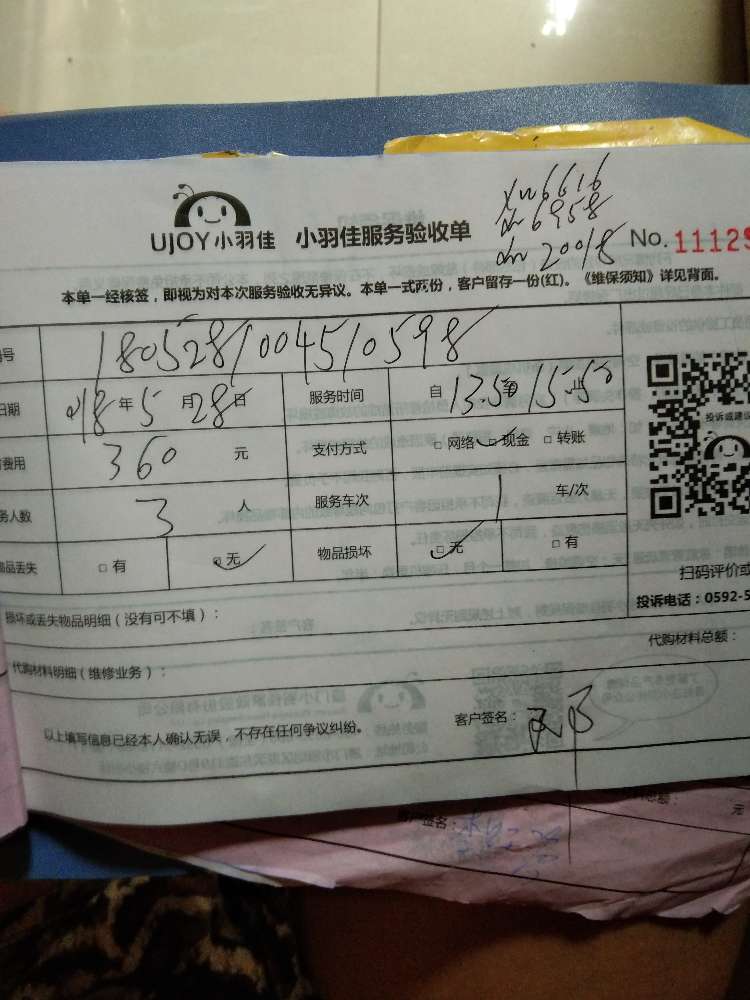 xm6616
xm6958
xm20018
UJOY小羽佳 小羽佳服务验收单 No. 11129
本单一经核签，即视为对本次服务验收无异议。本单一式两份，客户留存一份(红)。《维保须知》详见背面。
号 1805281004510598
日期 018年5月28日 服务时间 自13.50 至15.50止
费用 360 元 支付方式 □ 网络 □ 现金 □ 转账
务人数 3 人 服务车次 1 车/次
物品丢失 □ 有 □ 无 物品损坏 □ 无 □ 有
投诉或建议
扫码评价或
投诉电话：0592-5
损坏或丢失物品明细（没有可不填）：
代购材料明细（维修业务）： 代购材料总额：
以上填写信息已经本人确认无误，不存在任何争议纠纷。 客户签名：
客户签名：
元